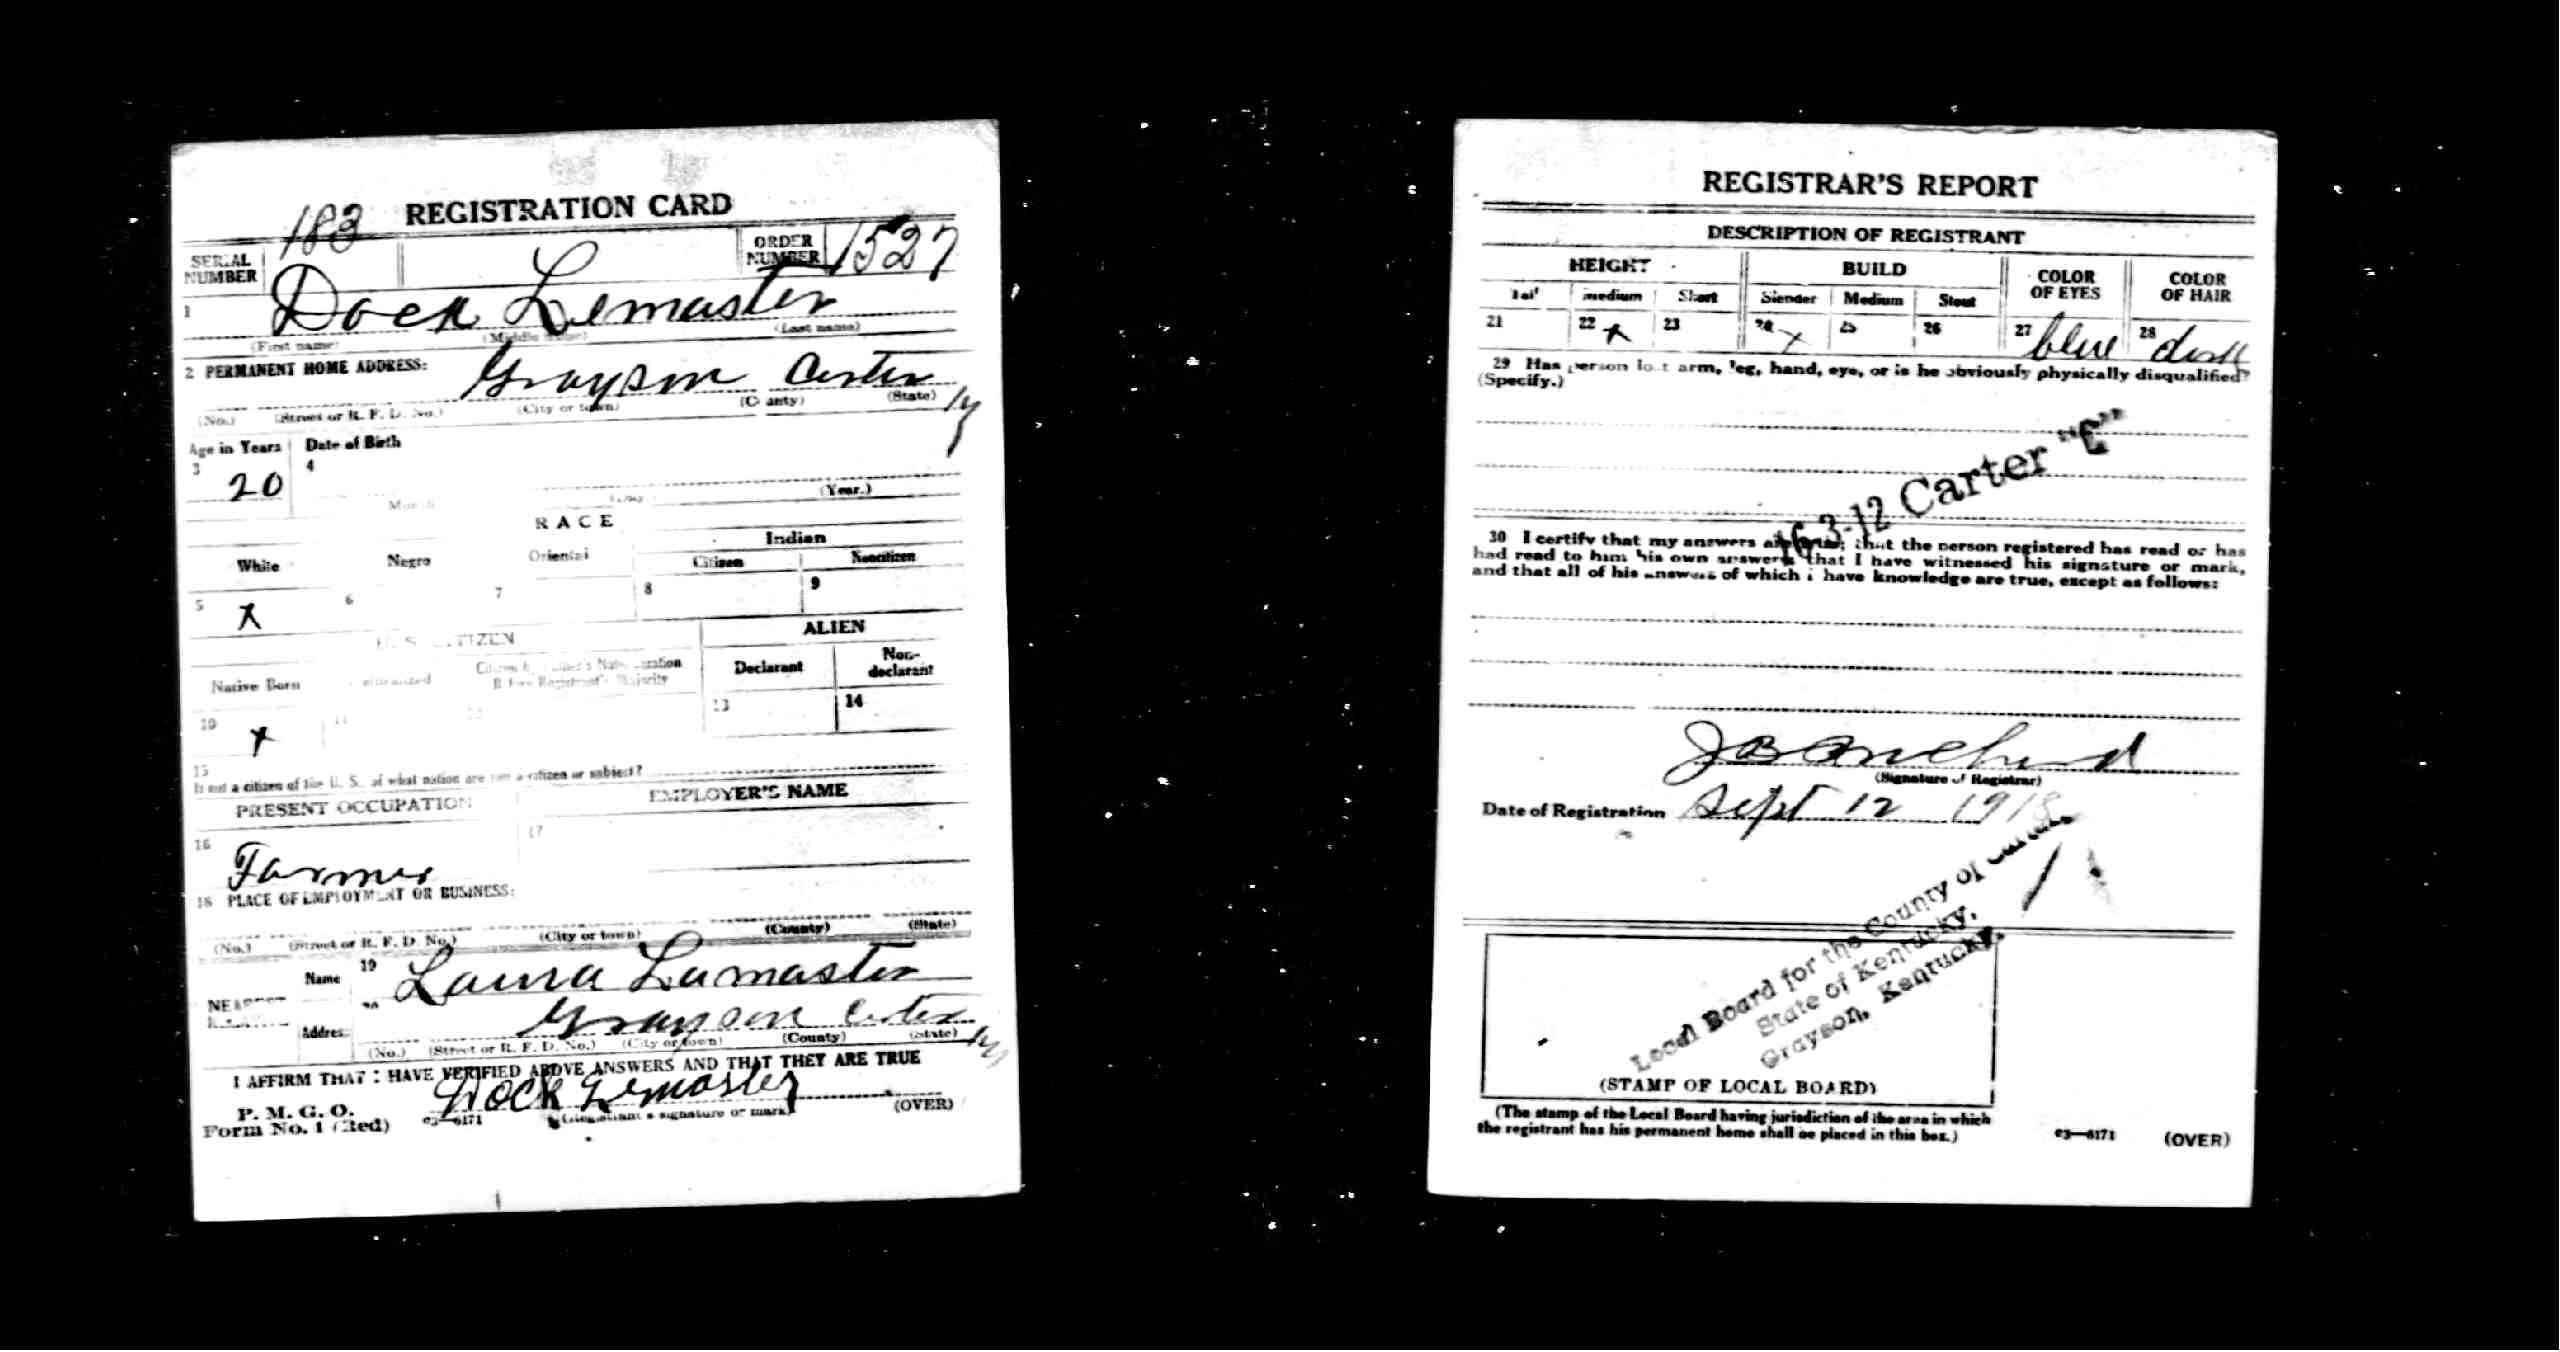 REGISTRATION CARD
SERIAL NUMBER 183 ORDER NUMBER 1527
1 Dock Lemaster
(First name) (Middle name) (Last name)
2 PERMANENT HOME ADDRESS: Grayson Carter Ky
(No.) (Street or R. F. D. No.) (City or town) (County) (State)
Age in Years Date of Birth
3 20 4
Month Day (Year.)
RACE
White Negro Oriental Indian
Citizen Noncitizen
5 X 6 7 8 9
U. S. CITIZEN ALIEN
Native Born Naturalized Citizen by Father's Naturalization Before Registrant's Majority Declarant Non-declarant
10 X 11 12 13 14
15
If not a citizen of the U. S., of what nation are you a citizen or subject?
PRESENT OCCUPATION EMPLOYER'S NAME
16 Farmer 17
18 PLACE OF EMPLOYMENT OR BUSINESS:
(No.) (Street or R. F. D. No.) (City or town) (County) (State)
NEAREST Name 19 Laura Lamaster
Address 20 Grayson Carter Ky
(No.) (Street or R. F. D. No.) (City or town) (County) (State)
I AFFIRM THAT I HAVE VERIFIED ABOVE ANSWERS AND THAT THEY ARE TRUE
P. M. G. O.
Form No. 1 (Red) 03—6171 Dock Lemaster
(Registrant's signature or mark) (OVER)
REGISTRAR'S REPORT
DESCRIPTION OF REGISTRANT
HEIGHT BUILD COLOR OF EYES COLOR OF HAIR
Tall medium Short Slender Medium Stout
21 22 X 23 24 X 25 26 27 blue 28 dark
29 Has person lost arm, leg, hand, eye, or is he obviously physically disqualified?
(Specify.)
16-3-12 Carter "C"
30 I certify that my answers are true; that the person registered has read or has
had read to him his own answers; that I have witnessed his signature or mark,
and that all of his answers of which I have knowledge are true, except as follows:
(Signature of Registrar)
Date of Registration Sept 12 1918
Local Board for the County of Carter,
State of Kentucky,
Grayson, Kentucky.
(STAMP OF LOCAL BOARD)
(The stamp of the Local Board having jurisdiction of the area in which
the registrant has his permanent home shall be placed in this box.)
03—6171 (OVER)